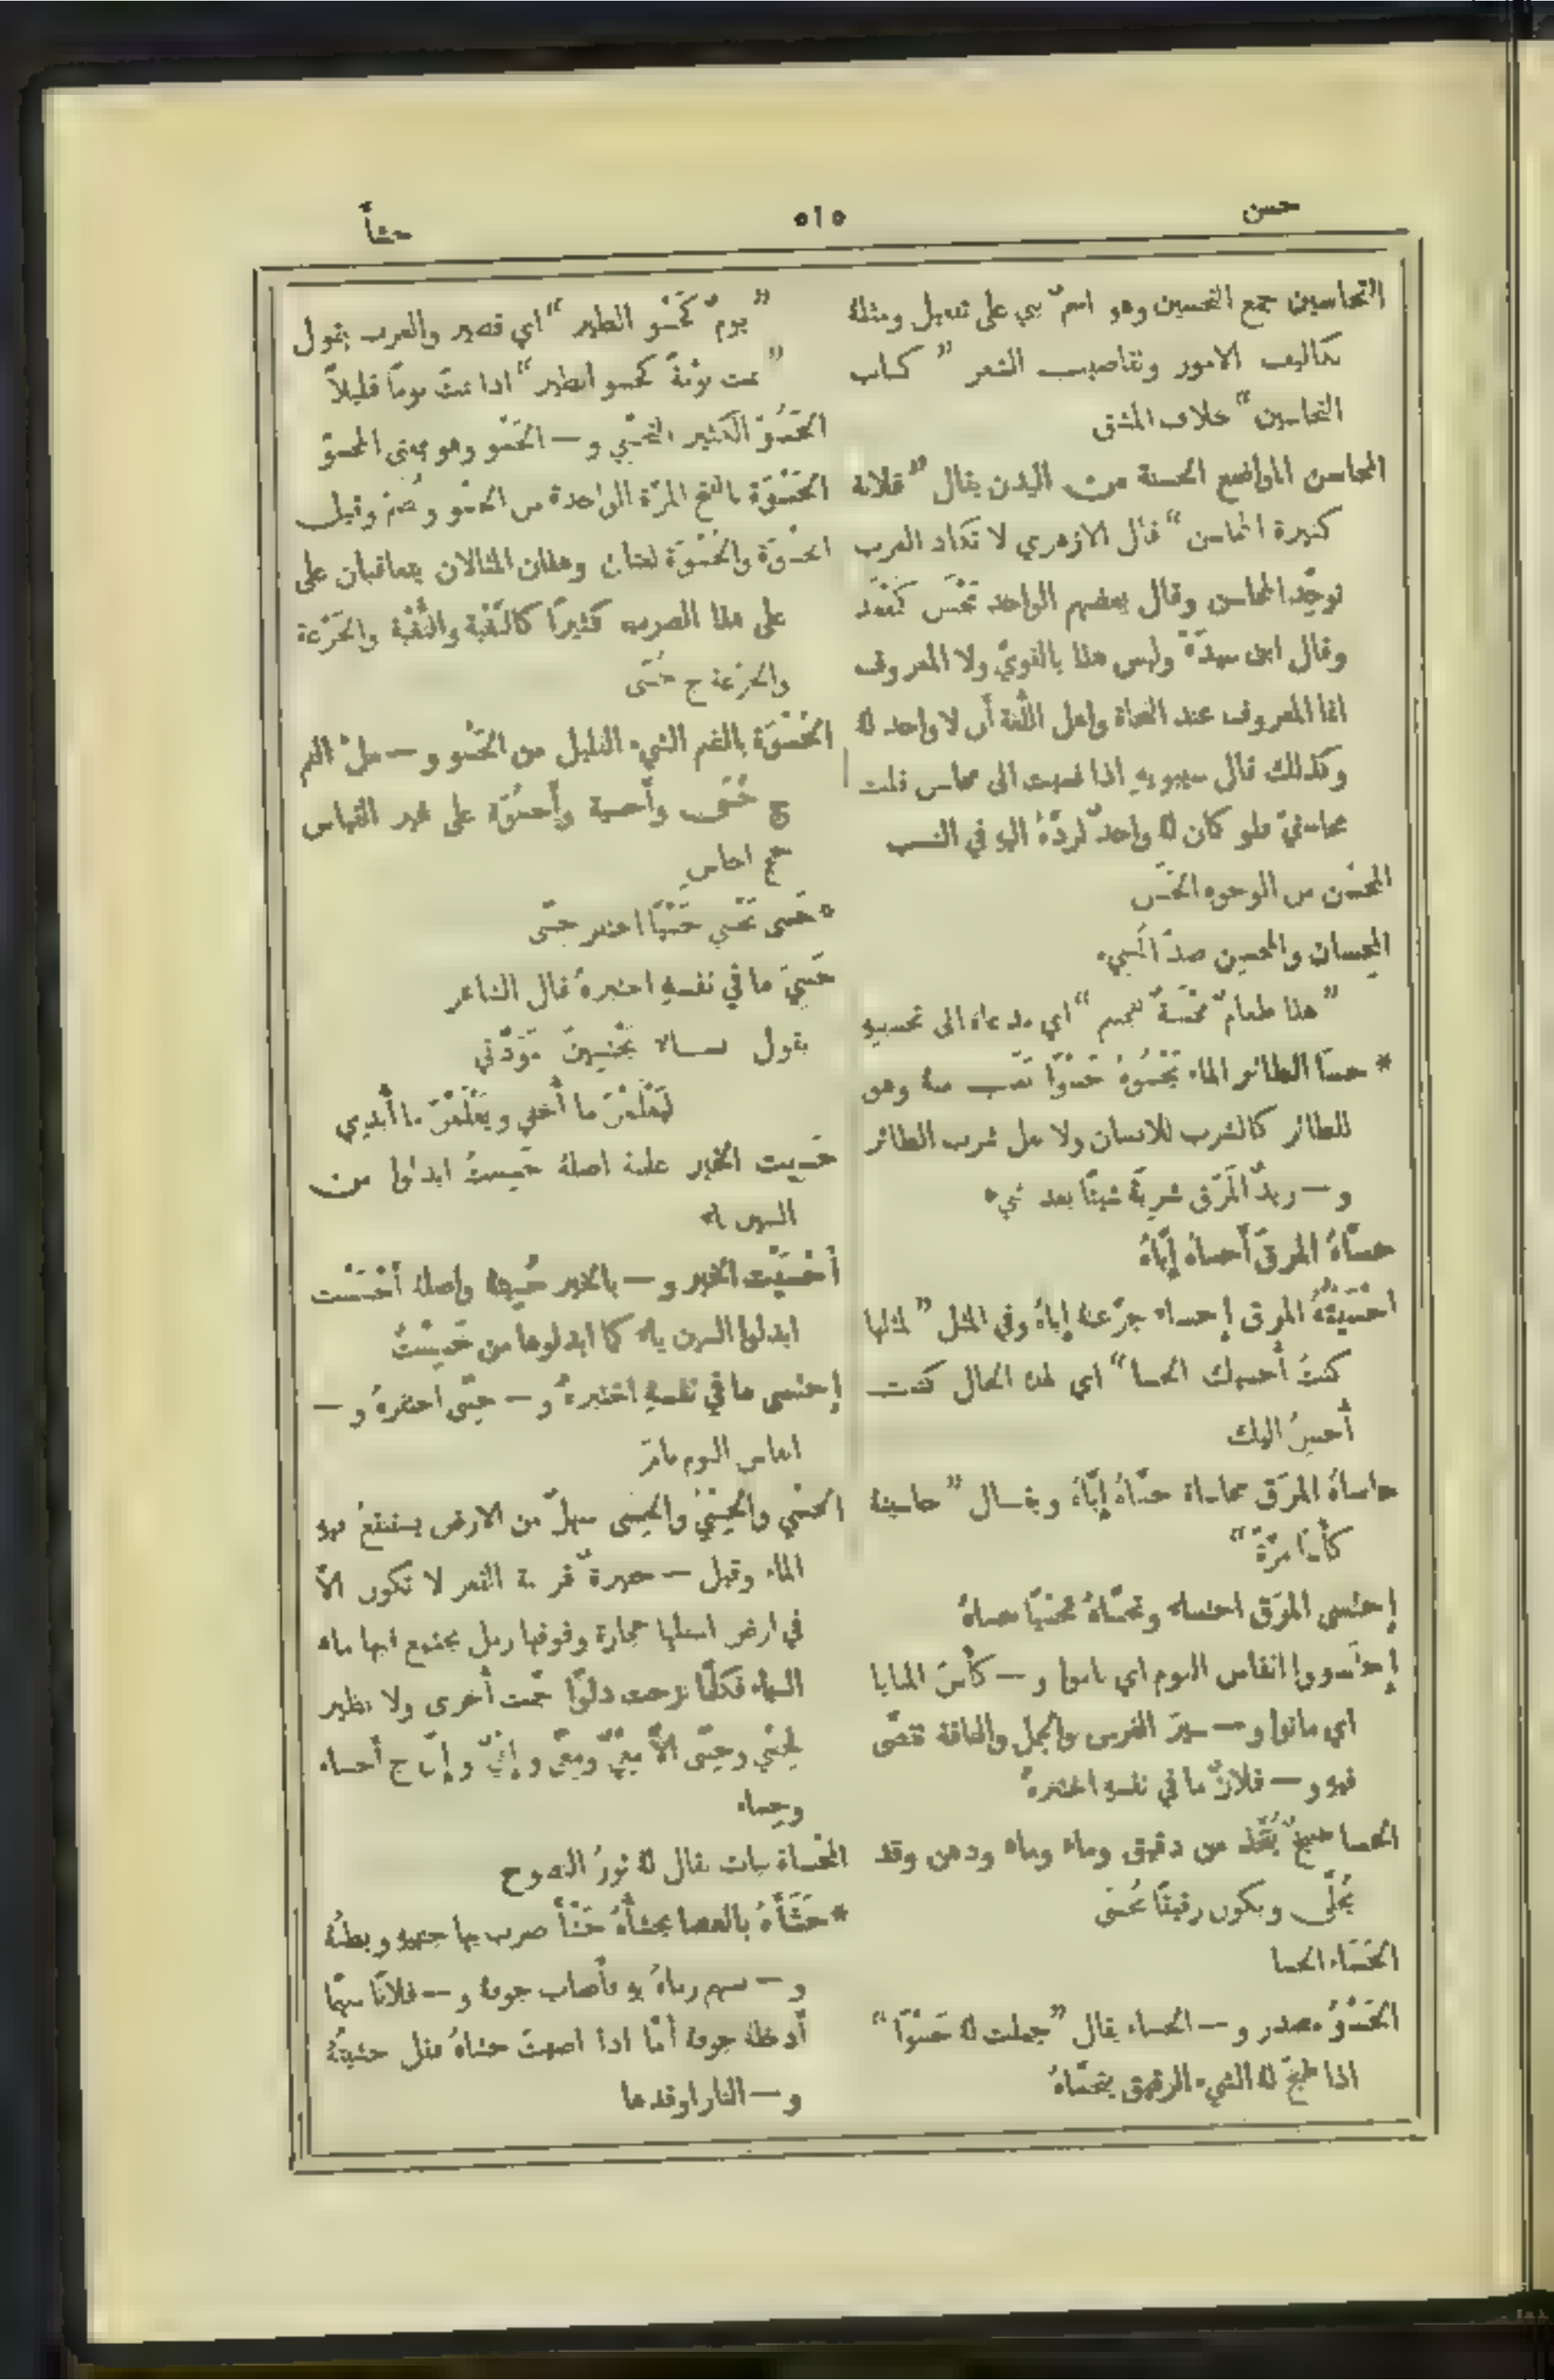 حسن
٥١٥
حشأ
التحاسين جمع التحسين وهو اسمٌ بني على تفعيل ومثلهُ
تكاليف الامور وتقاصيب الشعر ” كتاب
التحاسين“ خلاف المشق
المحاسن المواضع الحسنة من البدن يقال ”فلانة
كثيرة المحاسن“ قال الازهري لا تكاد العرب
توحّد المحاسن وقال بعضهم الواحد مَحْسَن كمَقْعَد
وقال ابن سيدَة وليس هذا بالقويّ ولا المعروف
انما المعروف عند النحاة واهل اللُّغة أن لا واحد لهُ
وكذلك قال سيبويهِ اذا نسبت الى محاسن قلت
محاسنيّ فلو كان لهُ واحدٌ لردَّهُ اليهِ في النسب
المحسَّن من الوجوه الحَسَن
المِحسان والمحسِن ضدّ المُسِيء
”هذا طعامٌ مَحْسَنةٌ للجسم“ اي مدعاة الى تحسينهِ
* حسا الطائر الماء يَحْسُوهُ حَسْوًا منهُ وهو
للطائر كالشرب للانسان ولا تقل شرب الطائر
و— زيدٌ المَرَق شربهُ شيئًا بعد شيء
حسَّاهُ المرقَ أحساهُ إيَّاهُ
أحْسَيْتُهُ المرق إحساء جرّعتهُ إياهُ وفي المثل ”لمثلها
كنتُ أحسيك الحسا“ اي لهذه الحال كنت
أُحسِنُ اليك
حاساهُ المرَق محاساة حسّاهُ إيَّاهُ ويقال ”حاسيتهُ
كأسًا مرَّةً“
إحتسى المرَق احتساء وتحسَّاهُ تحسّيًا حساهُ
إحتَسووا انفاس النوم اي ناموا و— كأسَ المنايا
اي ماتوا و— سيرَ الفرس والجمل والناقة تقصَّى
فيهِ و— فلانٌ ما في نفسهِ اختبرهُ
الحسا طبيخٌ يُتَّخذ من دقيق وماء وماء ودهن وقد
يُحلَّى ويكون رقيقًا يُحسَى
الحَسَاء الحسا
الحَسْوُ مصدر و— الحساء يقال ”جعلت لهُ حَسْوًا“
اذا طبخ لهُ الشيء الرقيق يتحسَّاهُ
”يومٌ كحَسْو الطير“ اي قصير والعرب يقول
”نمت نومةً كحسو الطير“ اذا نمتَ نومًا قليلًا
الحَسُوّ الكثير التحسّي و— الحَسْو وهو بمعنى المحسوّ
الحَسْوَة بالفتح المرَّة الواحدة من الحسْو ويُضَمّ وقيل
الحَسْوَة والحُسْوَة لغتان وهذان المثالان يتعاقبان على
على هذا الضرب كثيرًا كالنَّغْبة والنُّغْبة والجَرْعة
والجُرْعة ج حُسًى
الحُسْوَة بالضم الشيء القليل من الحَسْو و— ملْء الفم
ج حُسًى وأحسية وأحسُوَة على غير القياس
جج احاسٍ
* حَسَى يَحْسِي حَسْيًا احتفر حِسًى
حَسِيَ ما في نفسهِ اختبرهُ قال الشاعر
يقول نساء يَحْتَسِينَ مَوَدَّتي
لِيَعْلَمْنَ ما أُخفي ويَعْلَمْنَ ما أُبدي
حَسِيت الخبر علمتهُ اصلهُ حَسِستُ ابدلوا من
السين ياء
أحْسَيْت الخبر و— بالخبر حَسِيتهُ واصلهُ أحْسَسْت
ابدلوا السين ياء كما ابدلوها من حَسِسْتُ
إحتسى ما في نفسهِ اختبرهُ و— حِسًى احتفرهُ و—
انفاس النوم نام
الحَسْي والحِسْيُ والحِسَى سهلٌ من الارض يستنقع فيهِ
الماء وقيل — حفيرة قريبة القعر لا تكون الَّا
في ارض اسفلها حجارة وفوقها رمل يجتمع فيها ماء
السماء فكلَّما نزحت دلوًا جمَّت أُخرى ولا نظير
لحِسْيٍ وحِسًى الَّا مِعْيٌ ومِعًى وإنْيٌ وإنًى ج أحساء
وحِساء
المَحْساة نبات يقال لهُ نورُ
* حَشَأَهُ بالعصا يحشأُهُ حَشْأً ضرب بها جنبهُ وبطنهُ
و— بسهم رماهُ بهِ فأصاب جوفهُ و— فلانًا سهمًا
أدخلهُ جوفهُ أمَّا اذا اصبتَ حشاهُ فقل حشيتهُ
و— النار اوقدها